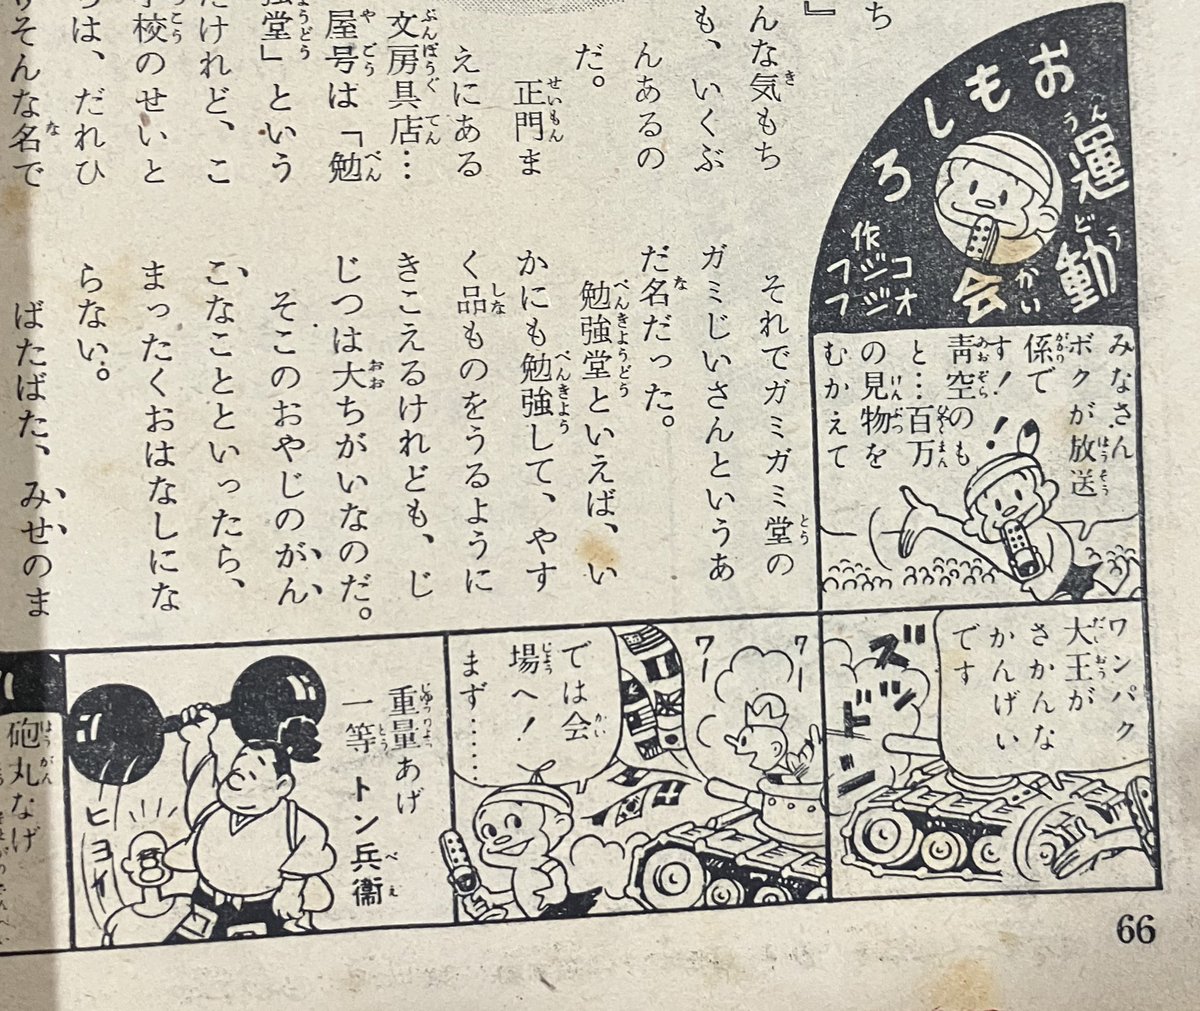 おもしろ
運動会
作
フジコ
フジオ
みなさん
ボクが放送
係で
す!
青空のも
と…百万
の見物を
むかえて
!
ワンパク
大王が
さかんな
かんげい
です
ズドドン
ワー
ワー
では会
場へ!
まず……
重量あげ
一等 トン兵衛
ヒョイ
砲丸なげ
ち
』
んな気もち
も、いくぶ
んあるの
だ。
正門ま
えにある
文房具店…
屋号は「勉
強堂」という
たけれど、こ
校のせいと
ちは、だれひ
りそんな名で
それでガミガミ堂の
ガミじいさんというあ
だ名だった。
勉強堂といえば、い
かにも勉強して、やす
く品ものをうるように
きこえるけれども、じ
じつは大ちがいなのだ。
そこのおやじのがん
こなことといったら、
まったくおはなしにな
らない。
ばたばた、みせのま
66